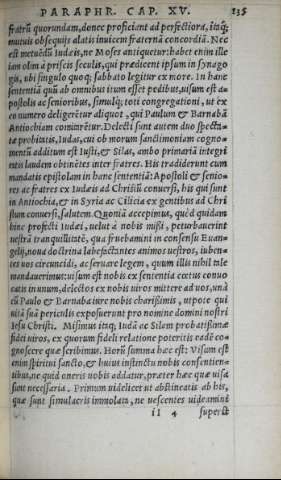 PARAPHR. CAP. XV. 135
fratrũ quorundam, donec proficiant ad perfectiora, itaq;
mutuis obsequijs alatis inuicem fraternã concordiã. Nec
est metuēdũ Iudæis, ne Moses antiquetur: habet enim ille
iam olim à priscis seculis, qui prædicent ipsum in synago
gis, ubi singulo quoq; sabbato legitur ex more. In hanc
sententiã quũ ab omnibus itum esset pedibus, uisum est a-
postolis ac senioribus, simulq; toti congregationi, ut ex
eo numero deligeretur aliquot, qui Paulum & Barnabã
Antiochiam comitarētur. Delecti sunt autem duo spectã
tæ probitatis, Iudas, cui ob morum sanctimoniam cogno-
mentũ additum est Iusti, & Silas, ambo primariã integri
tatis laudem obtinētes inter fratres. His tradiderunt cum
mandatis epistolam in hanc sententiã: Apostoli & senio-
res ac fratres ex Iudæis ad Christũ conuersi, his qui sunt
in Antiochia, & in Syria ac Cilicia ex gentibus ad Chri
stum conuersi, salutem. Quoniã accepimus, quòd quidam
hinc profecti Iudæi, uelut à nobis missi, perturbauerint
uestrã tranquillitatē, qua fruebamini in consensu Euan-
gelij, noua doctrina labefactantes animos uestros, iuben-
tes uos circuncidi, ac seruare legem, quum illis nihil tale
mandauerimus: uisum est nobis ex sententia cœtus conuo
cati in unum, delectos ex nobis uiros mittere ad uos, unà
cũ Paulo & Barnaba iure nobis charissimis, utpote qui
uitã suã periculis exposuerunt pro nomine domini nostri
Iesu Christi. Misimus itaq; Iudã ac Silem probatissimæ
fidei uiros, ex quorum fideli relatione poteritis eadē co-
gnoscere quæ scribimus. Horũ summa hæc est: Visum est
enim spiritui sancto, & huius instinctu nobis consentien-
tibus, ne quid oneris uobis addatur, præter hæc quæ uisa
sunt necessaria. Primum uidelicet ut abstineatis ab his,
quæ sunt simulacris immolata, ne uescentes uideamini
ii 4 superst